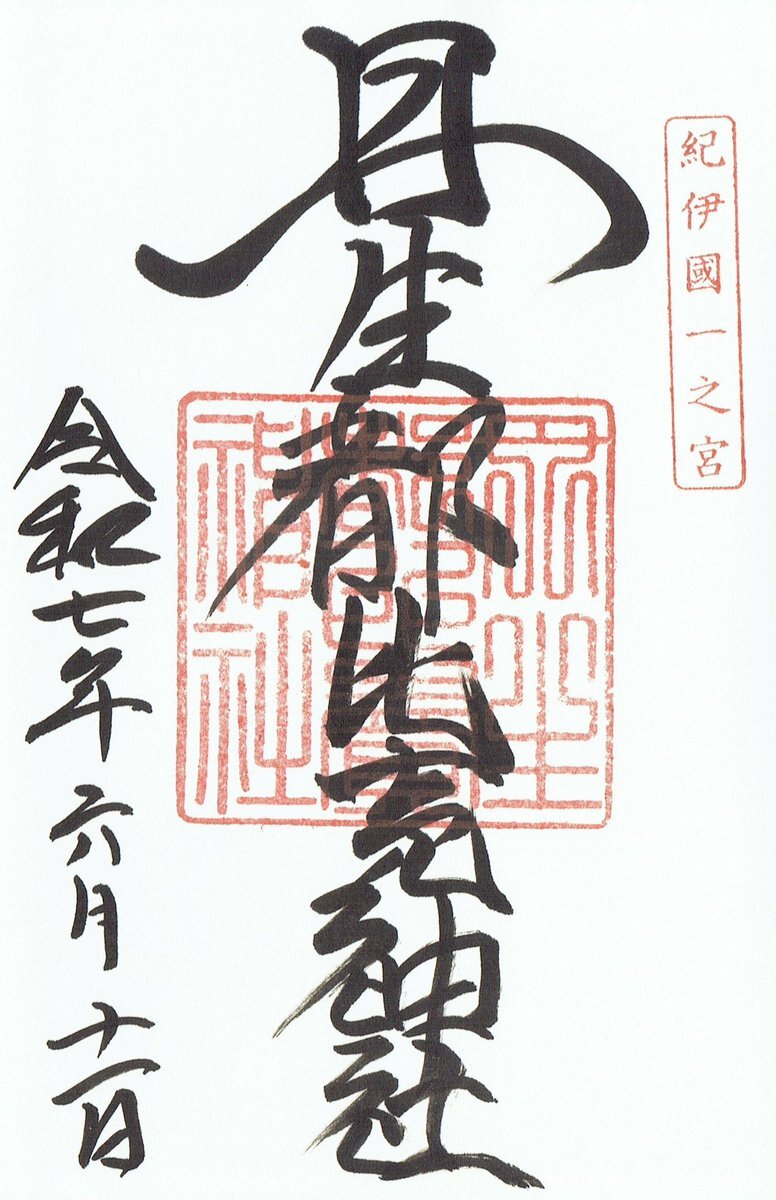 紀伊國一之宮
丹生都比売神社
丹生都比賣神社
令和七年六月十一日